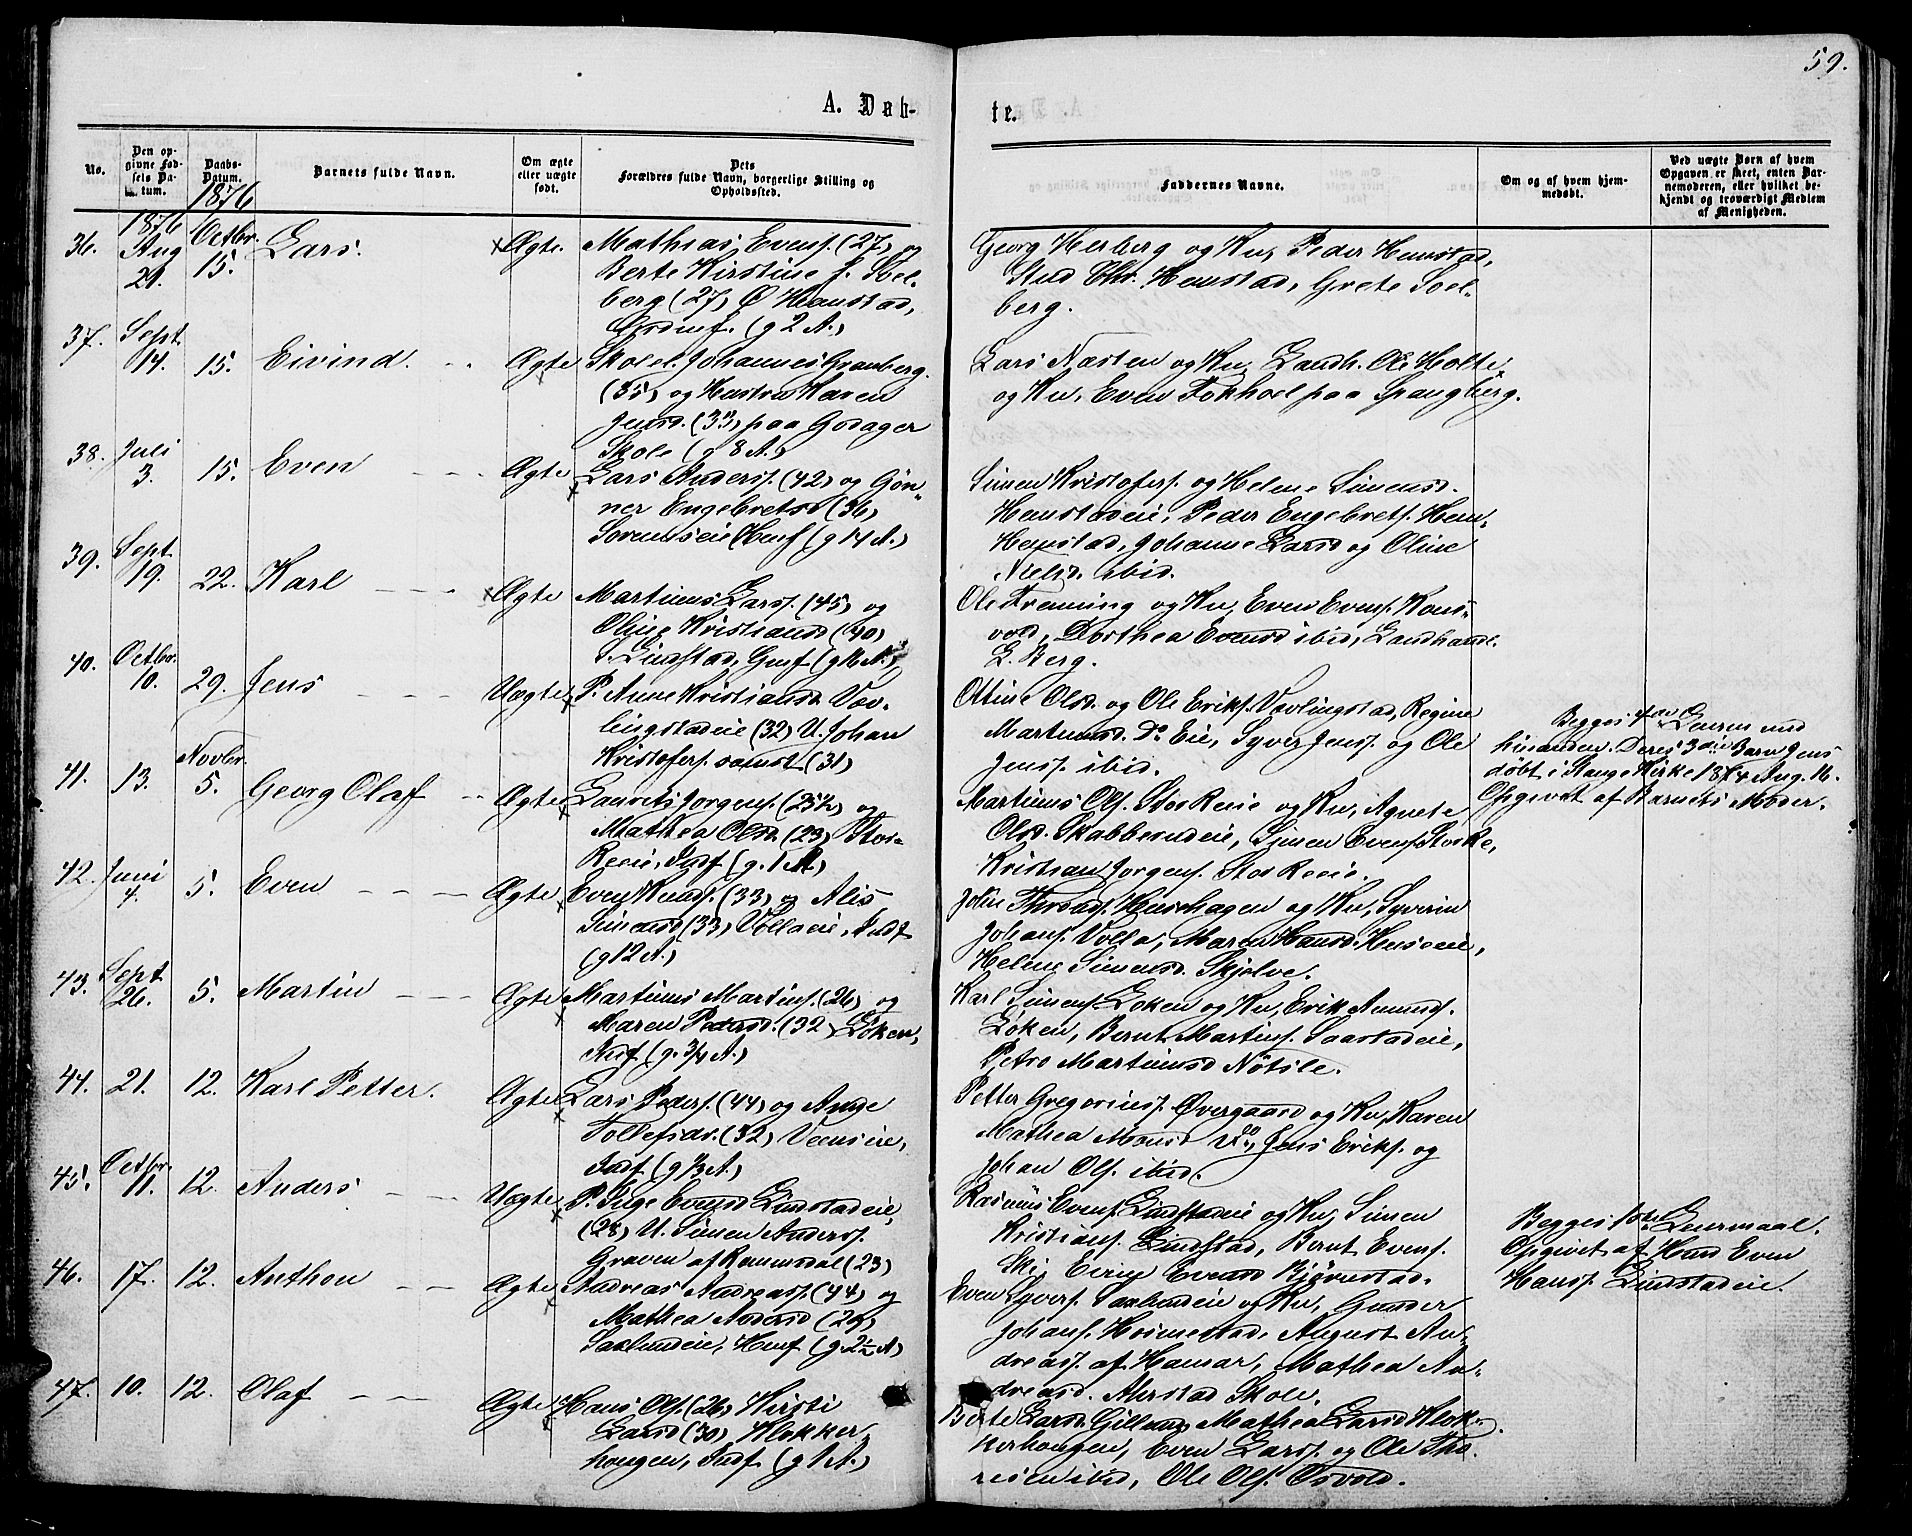 59.
A. Døb-
te.
No.
Den op-
givne Fød-
sels Da-
tum.
Daabs-
Datum.
1876
Barnets fulde Navn.
Om ægte
eller uægte
født.
Dets
Forældres fulde Navn, borgerlige Stilling og
Opholdssted.
Faddernes Navne.
Om og af hvem hjem-
medøbt.
Ved uægte Børn af hvem
Opgaven er skeet, enten Bar-
nemoderen, eller hvilket be-
kjendt og troværdigt Medlem
af Menigheden.
36.
1876
Aug
21.
Octbr.
15.
Lars.
Ægte.
Mathias Evens. (27) og
Berte Kirstine J. Soel-
berg (27) Ø Hemstad,
(g 2 A.)
Georg Herberg og Ku, Peder Hemstad,
Stud Chr. Hemstad, Grete Soel-
berg.
37.
Sept
14.
15.
Eivind.
Ægte
Skolel. Johannes Granberg
(35) og Hustru Karen
Jensd. (33) paa Godager
Skole (g 8 A.)
Lars Næsten og Ku, Landh. Ole Holte
og Ku, Even Fokhoel paa Spangberg.
38.
Juli
3.
15.
Even
Ægte
Lars Anders. (42) og Gøn-
ner Engebretsd (36)
Sorenseie Husf (g 14 A.)
Simen Kristofers. og Helene Simensd.
Hemstadeie, Peder Engebrets. Hem-
Hemstad, Johanne Larsd og Oline
Nielsd. ibid.
39.
Sept
19.
22.
Karl
Ægte
Martinus Lars. (45) og
Oline Kristiansd (40)
Lindstad, (g 16 A.)
Ole Fremming og Ku, Even Evens. Kons-
vold, Dorthea Evensd ibid, Landhandl.
L. Berg.
40.
Octbr.
10.
29.
Jens
Uægte
P. Anne Kristiansd. Vav-
lingstadeie (32) U. Johan
Kristofers. samst (31)
Ottine Olsd. og Ole Eriks. Vavlingstad, Regine
Martinusd. Do Eie, Syver Jenss. og Ole
Jenss. ibid.
Begges 4de Leierm med
hinanden. Deres 3die Barn Jens
døbt i Stange Kirke 1874 Aug. 16.
Opgivet af Barnets Moder.
41.
13.
Novbr.
5.
Georg Olaf
Ægte
Laurits Jorgens. (25½) og
Mathea Olsd. (23) Stor-
Reeie, Indf (g. 1 A.)
Martinus Ols. Stor Reeie og Ku, Agnete
Olsd. Skabberudeie, Simen Evens. Stor Re,
Kristian Jorgens. Stor Reeie.
42.
Juni
4.
5.
Even
Ægte
Even Knuds. (33) og Alis
Simensd (33) Vollaeie, Indf
(g 12 A.)
Johan Hushagen og Ku, Syverin
Johans. Volla, Maren Hansd. Huseeie,
Helene Simensd. Skjelve.
43.
Sept
26.
5.
Martin
Ægte
Martinus Martins. (26) og
Maren Pedersd. (32 Løken,
Indf (g. ¾ A.)
Karl Simens. Løken og Ku, Erik Amunds.
Løken, Bernt Martins. Saastadeie,
Petra Martinusd Nötsle.
44.
21.
12.
Karl Petter.
Ægte
Lars Peders. (44) og Anne
Tollefsdr. (32) Veenseie,
Indf (g ½ A.)
Petter Gregorius. Øvergaard og Ku, Karen
Mathea Monsd Do, Jens Eriks. og
Johan Ols. ibid.
45.
Octbr.
11.
12.
Anders
Uægte
P. Inge Evensd Lindstadeie,
(28) U. Simen Anderss.
Graven af Romsdal (23)
Rasmus Evens. Lindstadeie og Ku, Simen
Kristians. Lindstad, Bernt Evens.
Eie, Eline Evensd Bjørnstad.
Begges 1ste Leiermaal.
Opgivet af Hmd Even
Hanss. Lindstadeie.
46.
17.
12.
Anthon
Ægte
Andreas Andreass. (44) og
Mathea Andersd (26)
Saxlundeie, Husf (g. 2½ A)
Even Syvers. Saxlundeie og Ku, Gunder
Johans. Hosmestad, August An-
dreass. af Hamar, Mathea An-
dreasd. Aarstad Skole.
47.
10.
12.
Olaf
Ægte
Hans Ols. (26) Kirsti
Larsd (30) Klokker-
haugen, Indf (g 1 A.)
Berte Larsd. Gillund, Mathea Larsd Klok-
kerhaugen, Even Larss. og Ole Tho-
resen ibid, Ole Ols. Osvold.